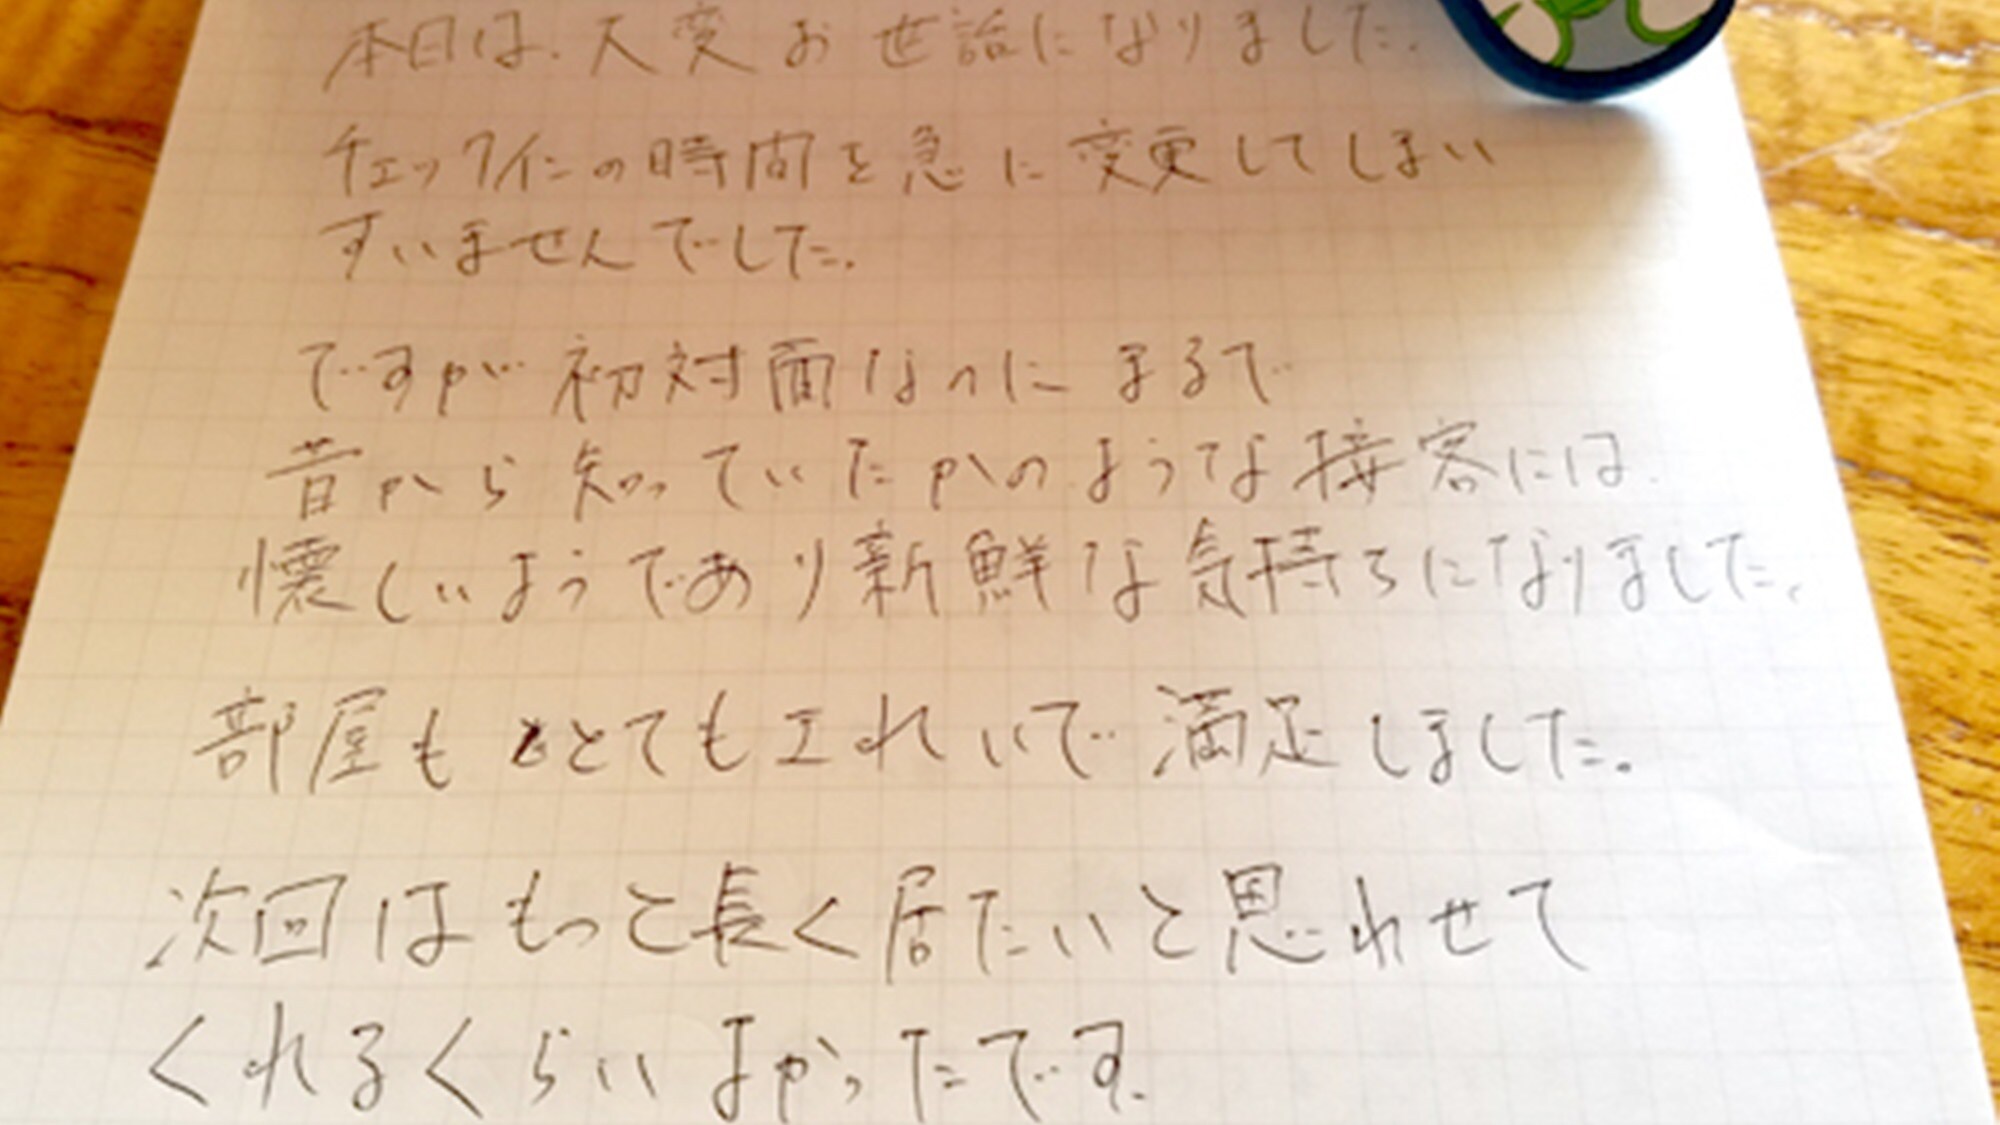 本日は、大変お世話になりました。
チェックインの時間を急に変更してしまい
すいませんでした。
ですが初対面なのにまるで
昔から知っていたかのような接客には、
懐しいようであり新鮮な気持ちになりました。
部屋もとてもエれいで満足しました。
次回はもっと長く居たいと思わせて
くれるくらいよかったです。